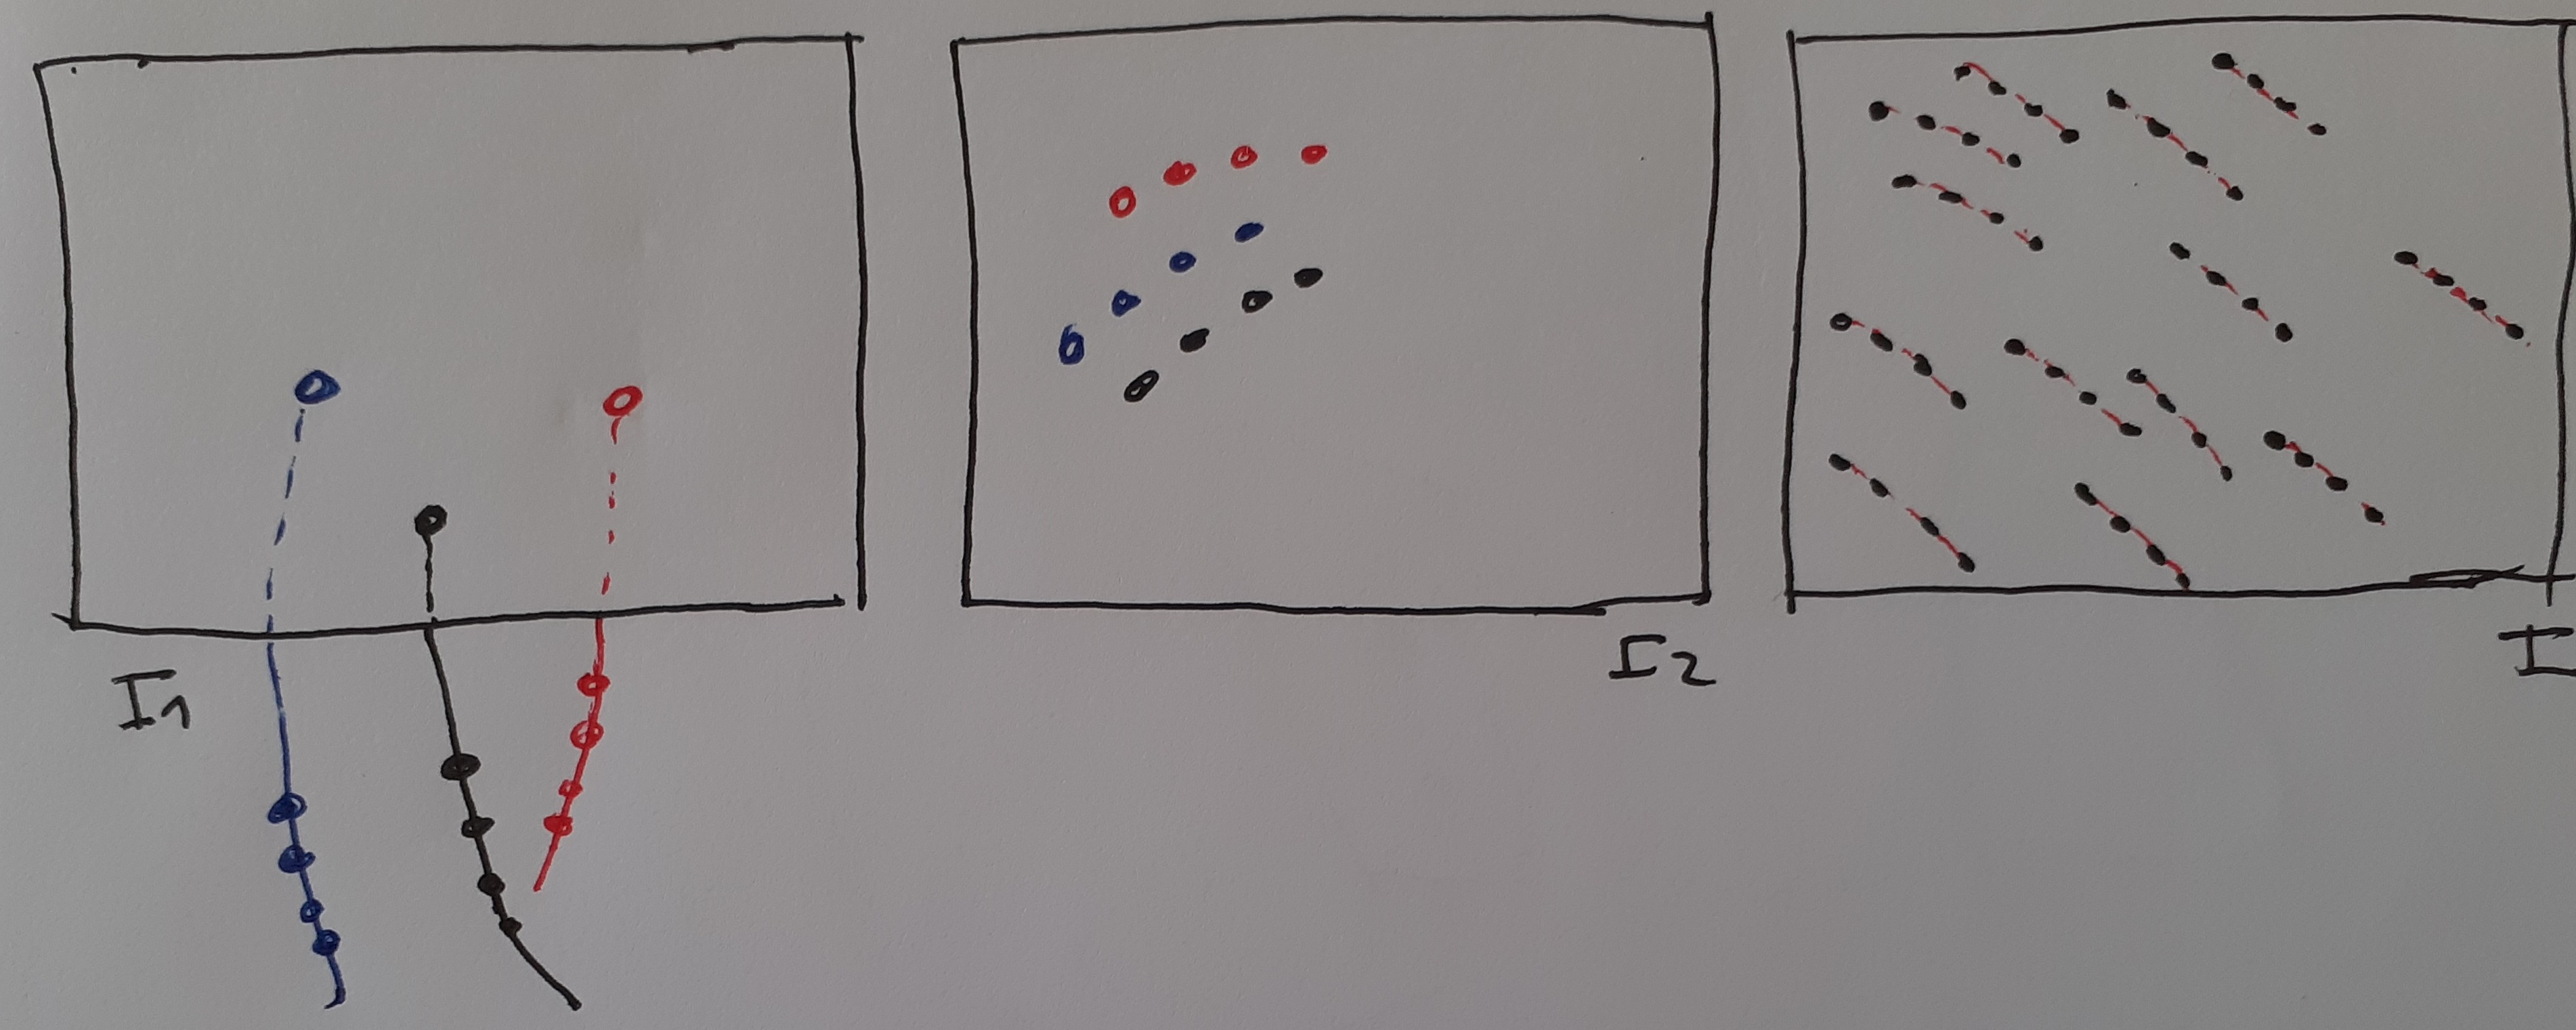 I1
I2
I